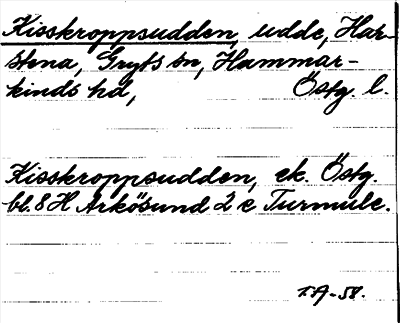 Kisskroppsudden, udde, Har-
stena, Gryts sn, Hammar-
kinds hd, Östg. l.
Kisskroppsudden, ek. Östg.
bl. 8 H Arkösund 2 e Turmulc.
T.A-58.